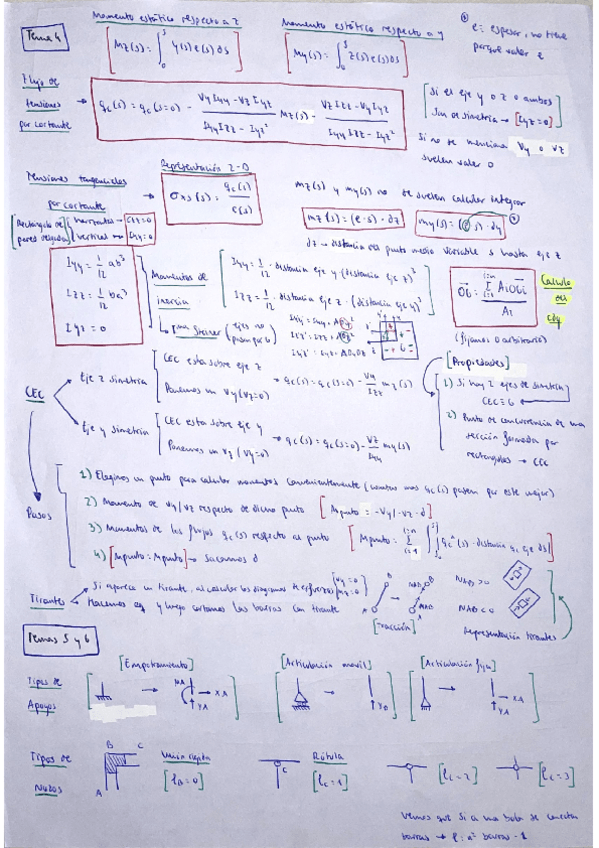 Tema 4
Momento estático respecto a z
Mz(s) = ∫₀ˢ y(s) e(s) ds
Momento estático respecto a y
My(s) = ∫₀ˢ z(s) e(s) ds
e: espesor, no tiene
porque valer e
Flujo de
tensiones
por cortante
qc(s) = qc(s=0) - (Vy Iyy - Vz Iyz)/(Iyy Izz - Iyz²) Mz(s) - (Vz Izz - Vy Iyz)/(Iyy Izz - Iyz²)
Si el eje y o z o ambos
son de simetría → [Iyz=0]
Si no se menciona Vy o Vz
suelen valer 0
Tensiones tangenciales
por cortante
Representación 2-D
σxs(s) = qc(s)/e(s)
mz(s) y my(s) no se suelen calcular integrar
mz(s) = (e·s)·dz
my(s) = (e·s)·dy
dz → distancia del punto medio variable s hasta eje z
Rectángulo de
pared delgada
horizontal → Izz=0
vertical → Iyy=0
Iyy = 1/12 ab³
Izz = 1/12 ba³
Iyz = 0
Momentos de
inercia
Iyy = 1/12 · distancia eje y · (distancia eje z)³
Izz = 1/12 · distancia eje z · (distancia eje y)³
para Steiner (ejes no
pasan por G)
Calculo
del
cdg
(fijamos O arbitrario)
[Propiedades]
1) Si hay 2 ejes de simetría
CEC≡G
2) Punto de concurrencia de una
sección formada por
rectángulos → CEC
CEC
Eje z simetría
CEC esta sobre eje z
Ponemos un Vy (Vz=0)
→ qc(s) = qc(s=0) - Vy/Izz mz(s)
Eje y simetría
CEC esta sobre eje y
Ponemos un Vz (Vy=0)
→ qc(s) = qc(s=0) - Vz/Iyy my(s)
Pasos
1) Elegimos un punto para calcular momentos convenientemente (cuantos mas qc(s) pasen por este mejor)
2) Momento de Vy/Vz respecto de dicho punto [Mpunto = -Vy/-Vz · d]
3) Momentos de los flujos qc(s) respecto al punto
4) [Mpunto = Mpunto] → Sacamos d
Tirantes
Si aparece un tirante, al calcular los diagramas de esfuerzos
Hacemos eq y luego cortamos las barras con tirante
[Tracción]
NAB > 0
NAB < 0
Representación tirantes
Temas 5 y 6
Tipos de
Apoyos
[Empotramiento]
MA
XA
YA
[Articulación movil]
YB
[Articulación fija]
XA
YA
Tipos de
Nudos
B
C
A
Unión rígida
[lB=0]
Rótula
C
[lC=1]
[lC=2]
[lC=3]
vemos que si a una bola se conectan
barras → l = nº barras - 1